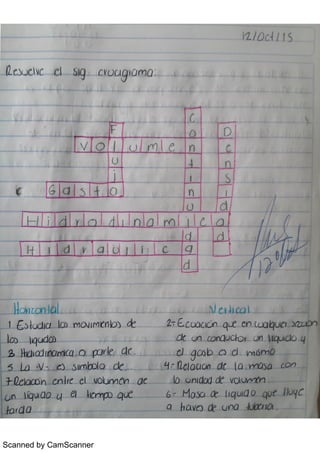 12/Oct/15
Resuelve el sig crucigrama:
C
F o D
V o l u m e n e
u t n
j i s
G a s t o n i
u d
H i d r o d i n a m i c a
d d
H i d r a u l i c a
d
Horizontal
1. Estudia los movimientos de
los liquidos
3. Hidrodinamica o parte de
5. La -V- es simbolo de
7. Relacion entre el volumen de
un liquido y el tiempo que
tarda
Vertical
2.- Ecuación que en cualquier seccion
de un conductor un liquido y
el gasto o el mismo
4.- Relacion de la masa con
la unidad de volumen
6.- Masa de liquido que fluye
a traves de una tuberia
Scanned by CamScanner